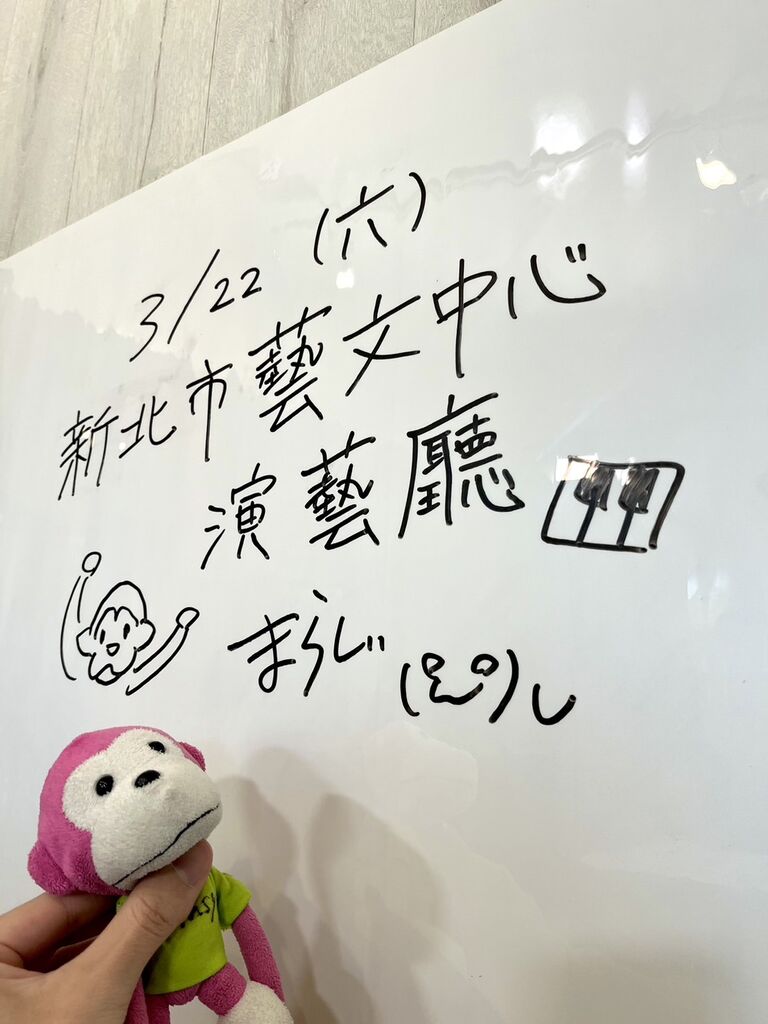 3/22 (六)
新北市藝文中心
演藝廳
まらしぃ